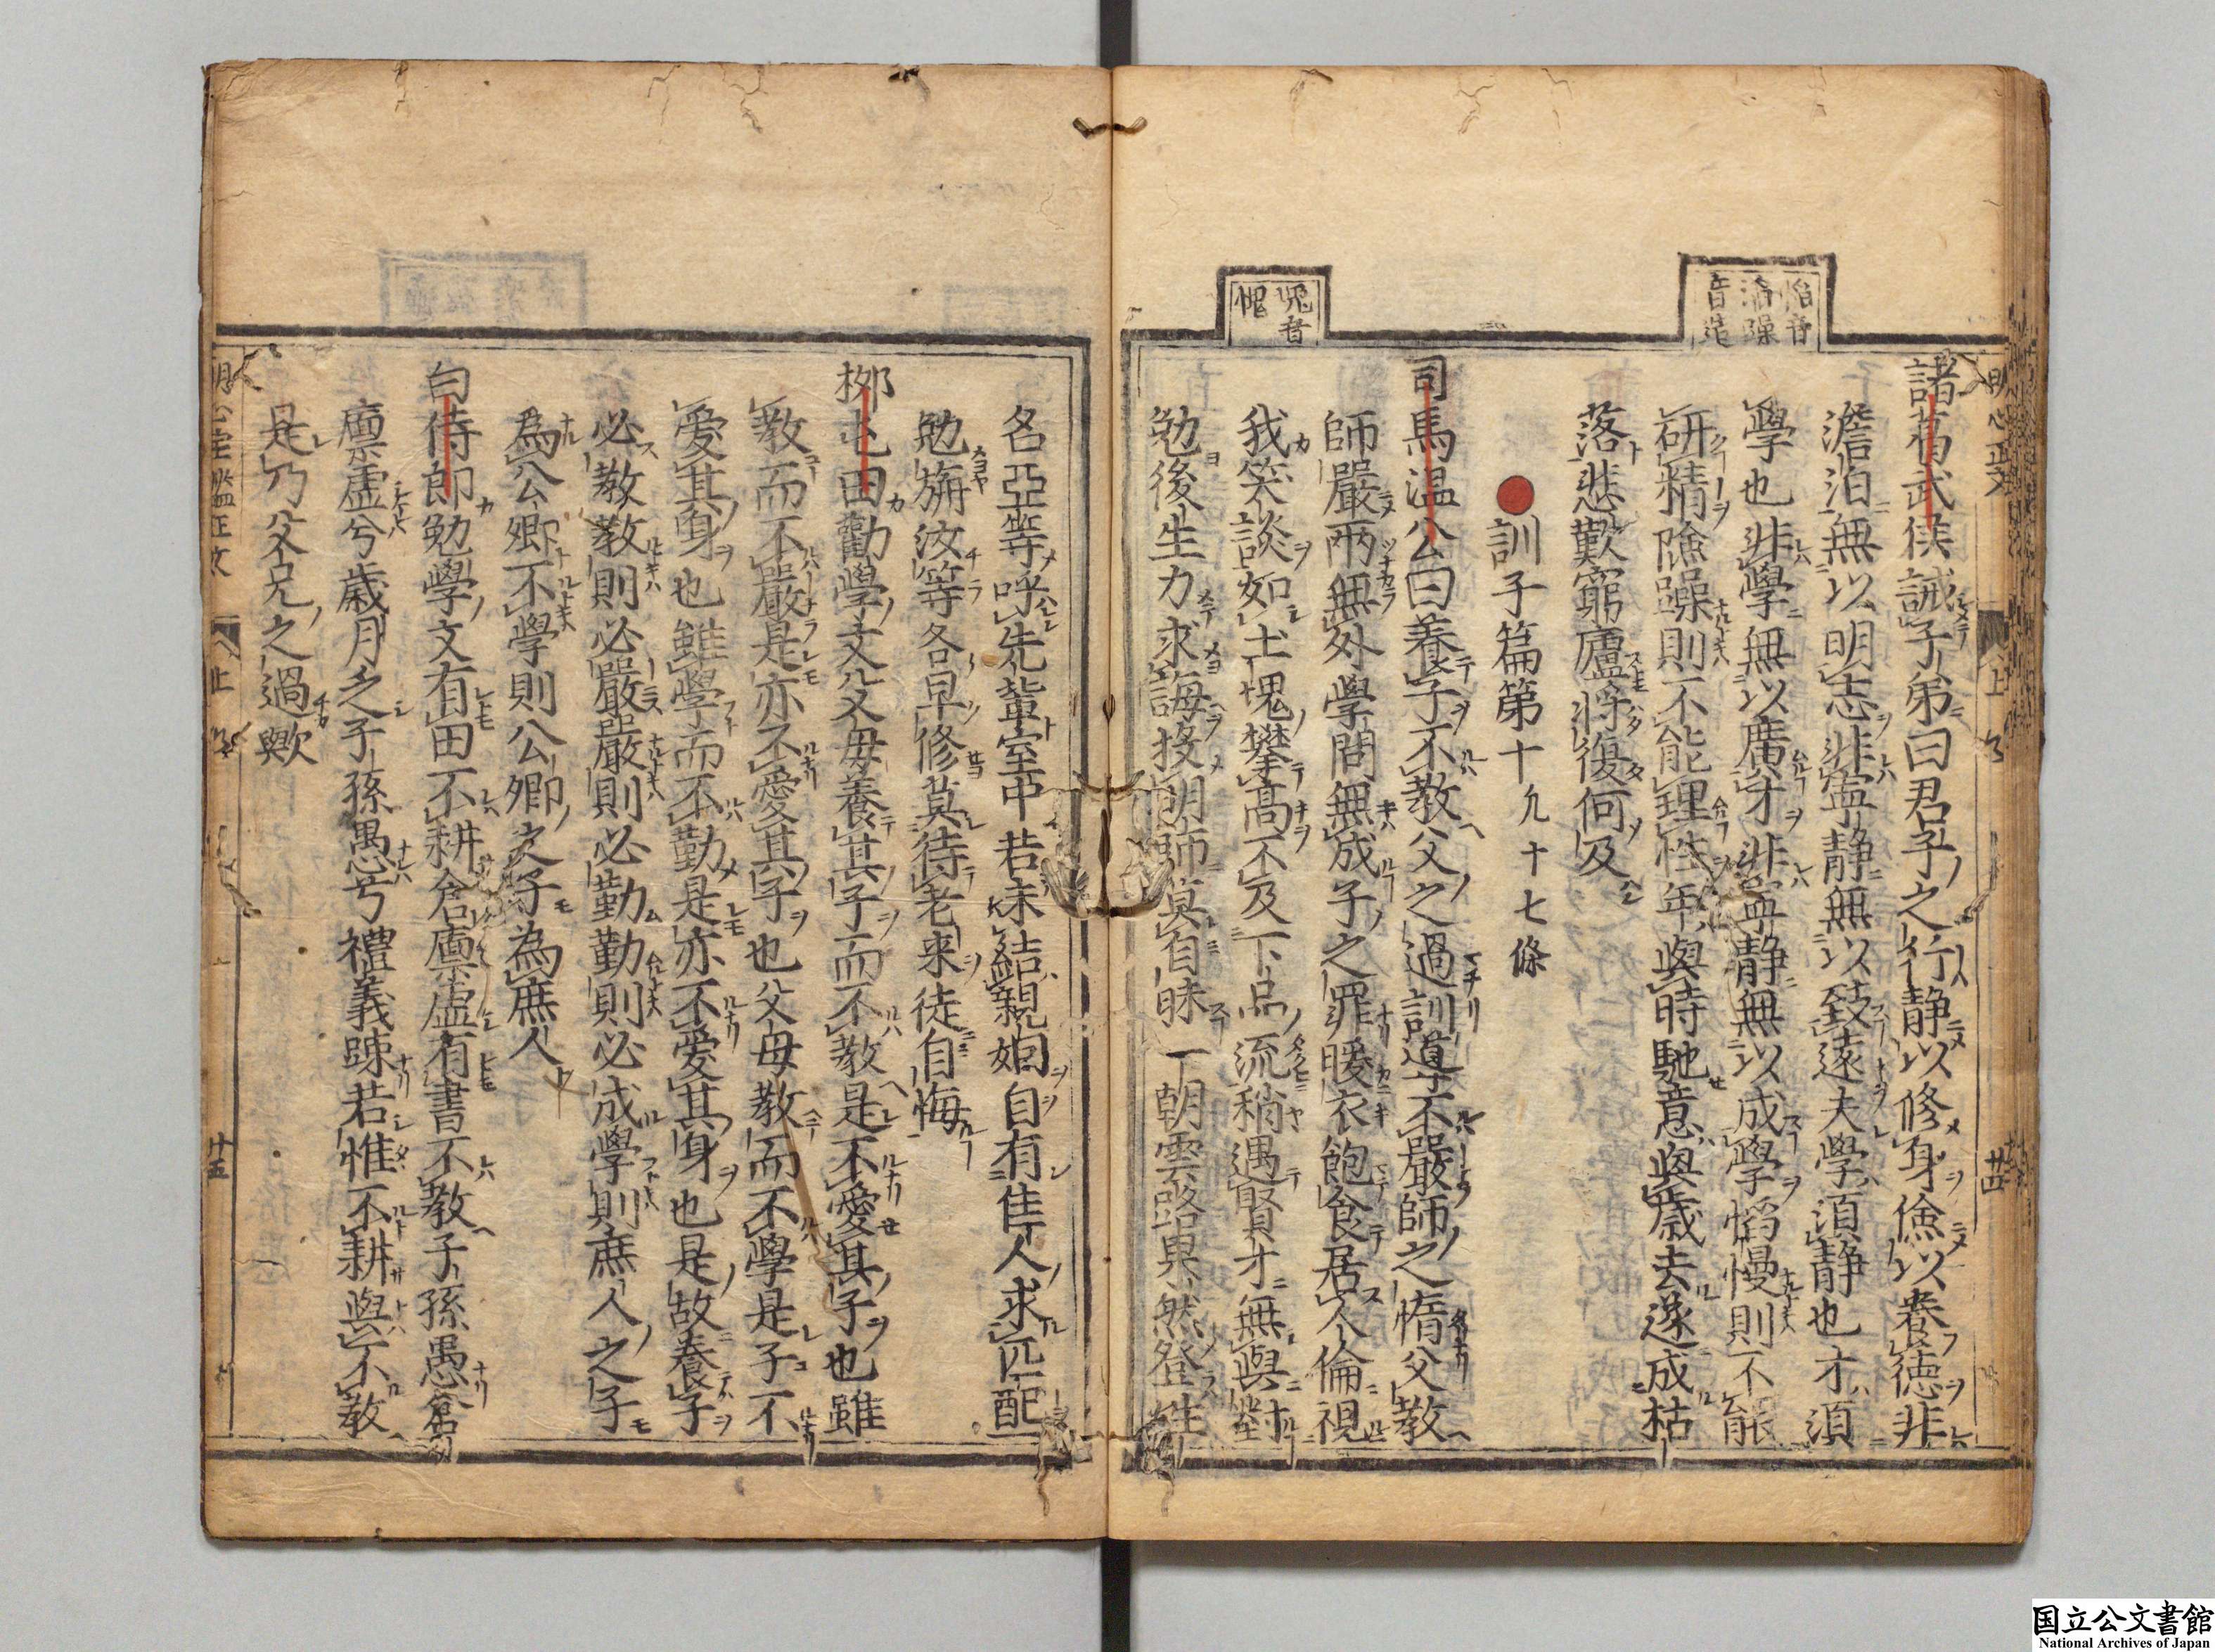 諸葛武侯誡子弟曰君子之行静以修身儉以養德非
澹泊無以明志非寧静無以致遠夫學須静也才須
學也非學無以廣才非寧静無以成學慆慢則不能
研精險躁則不能理性年與時馳意與歳去遂成枯
落悲歎窮廬將復何及
訓子篇第十九十七條
司馬温公曰養子不教父之過訓導不嚴師之惰父教
師嚴兩無外學問無成子之罪暖衣飽食居人倫視
我笑談如土塊攀高不及下品流稍遇賢才無與對
勉後生力求誨投明師莫自昧一朝雲路果然登姓
名亞等呼先輩室中若未結親姻自有佳人求匹配
勉旃汝等各早修莫待老来徒自悔
栁屯田勸學文父母養其子而不教是不愛其子也雖
教而不嚴是亦不愛其子也父母教而不學是子不
愛其身也雖學而不勤是亦不愛其身也是故養子
必教教則必嚴嚴則必勤勤則必成學則庶人之子
為公卿不學則公卿之子為庶人
白侍郎勉學文有田不耕倉廪虚有書不教子孫愚倉
廪虚兮歳月乏子孫愚兮禮義踈若惟不耕與不教
是乃父兄之過歟
慆音
滔躁
音造
塊音
明心正文
上
廿四
廿五
国立公文書館
National Archives of Japan